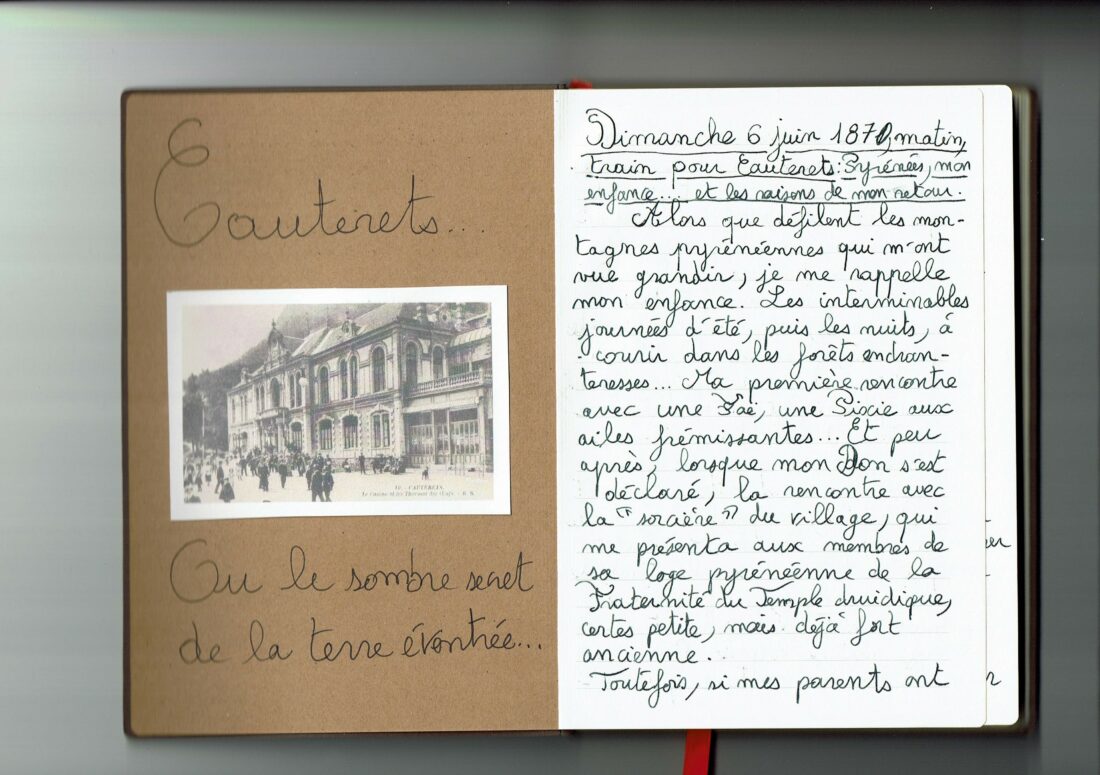 Cauterets....
10. - CAUTERETS.
Le Casino et les Thermes des Œufs. - B. R.
Ou le sombre secret
de la terre éventrée...
Dimanche 6 juin 1870, matin,
train pour Cauterets : Pyrénées, mon
enfance... et les raisons de mon retour.
Alors que défilent les mon-
tagnes pyrénéennes qui m'ont
vue grandir, je me rappelle
mon enfance. Les interminables
journées d'été, puis les nuits, à
courir dans les forêts enchan-
teresses... Ma première rencontre
avec une Faë, une Pixie aux
ailes frémissantes... Et peu
après, lorsque mon Don s'est
déclaré, la rencontre avec
la "sorcière" du village, qui
me présenta aux membres de
sa loge pyrénéenne de la
Fraternité du Temple druidique,
certes petite, mais déjà fort
ancienne.
Toutefois, si mes parents ont